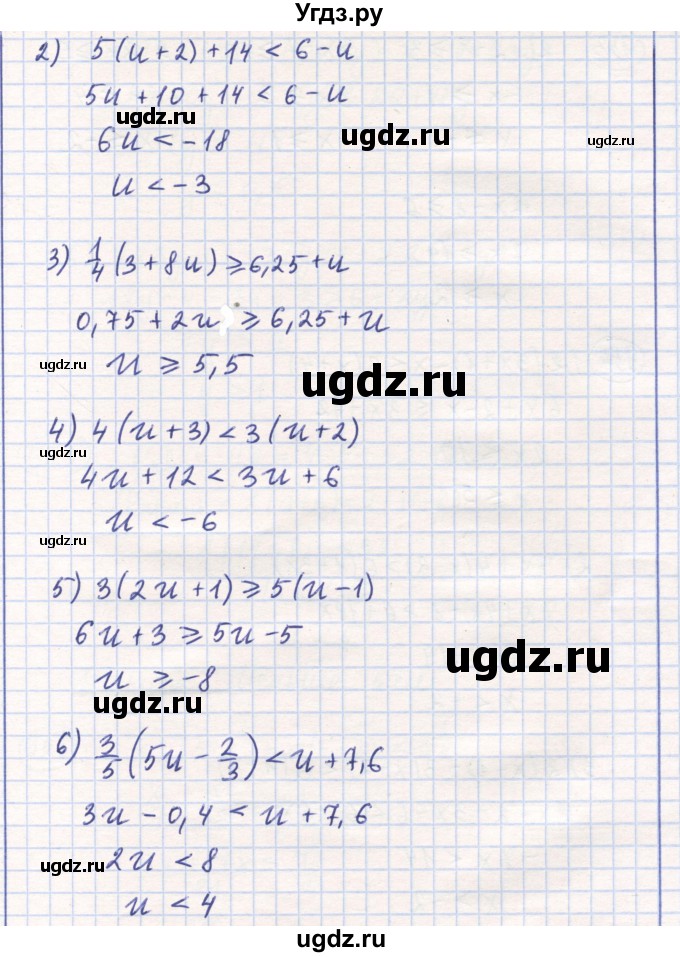 Угдз.ру
2) 5(u+2)+14 < 6-u
5u+10+14 < 6-u
ugdz.ru
ugdz.ru
ugdz.ru
6u < -18
u < -3
3) 1/4 (3+8u) ⩾ 6,25+u
0,75+2u ⩾ 6,25+u
ugdz.ru
u ⩾ 5,5
ugdz.ru
4) 4(u+3) < 3(u+2)
ugdz.ru
4u+12 < 3u+6
u < -6
ugdz.ru
5) 3(2u+1) ⩾ 5(u-1)
6u+3 ⩾ 5u-5
ugdz.ru
u ⩾ -8
ugdz.ru
6) 3/5 (5u - 2/3) < u+7,6
3u-0,4 < u+7,6
ugdz.ru
2u < 8
u < 4
ugdz.ru